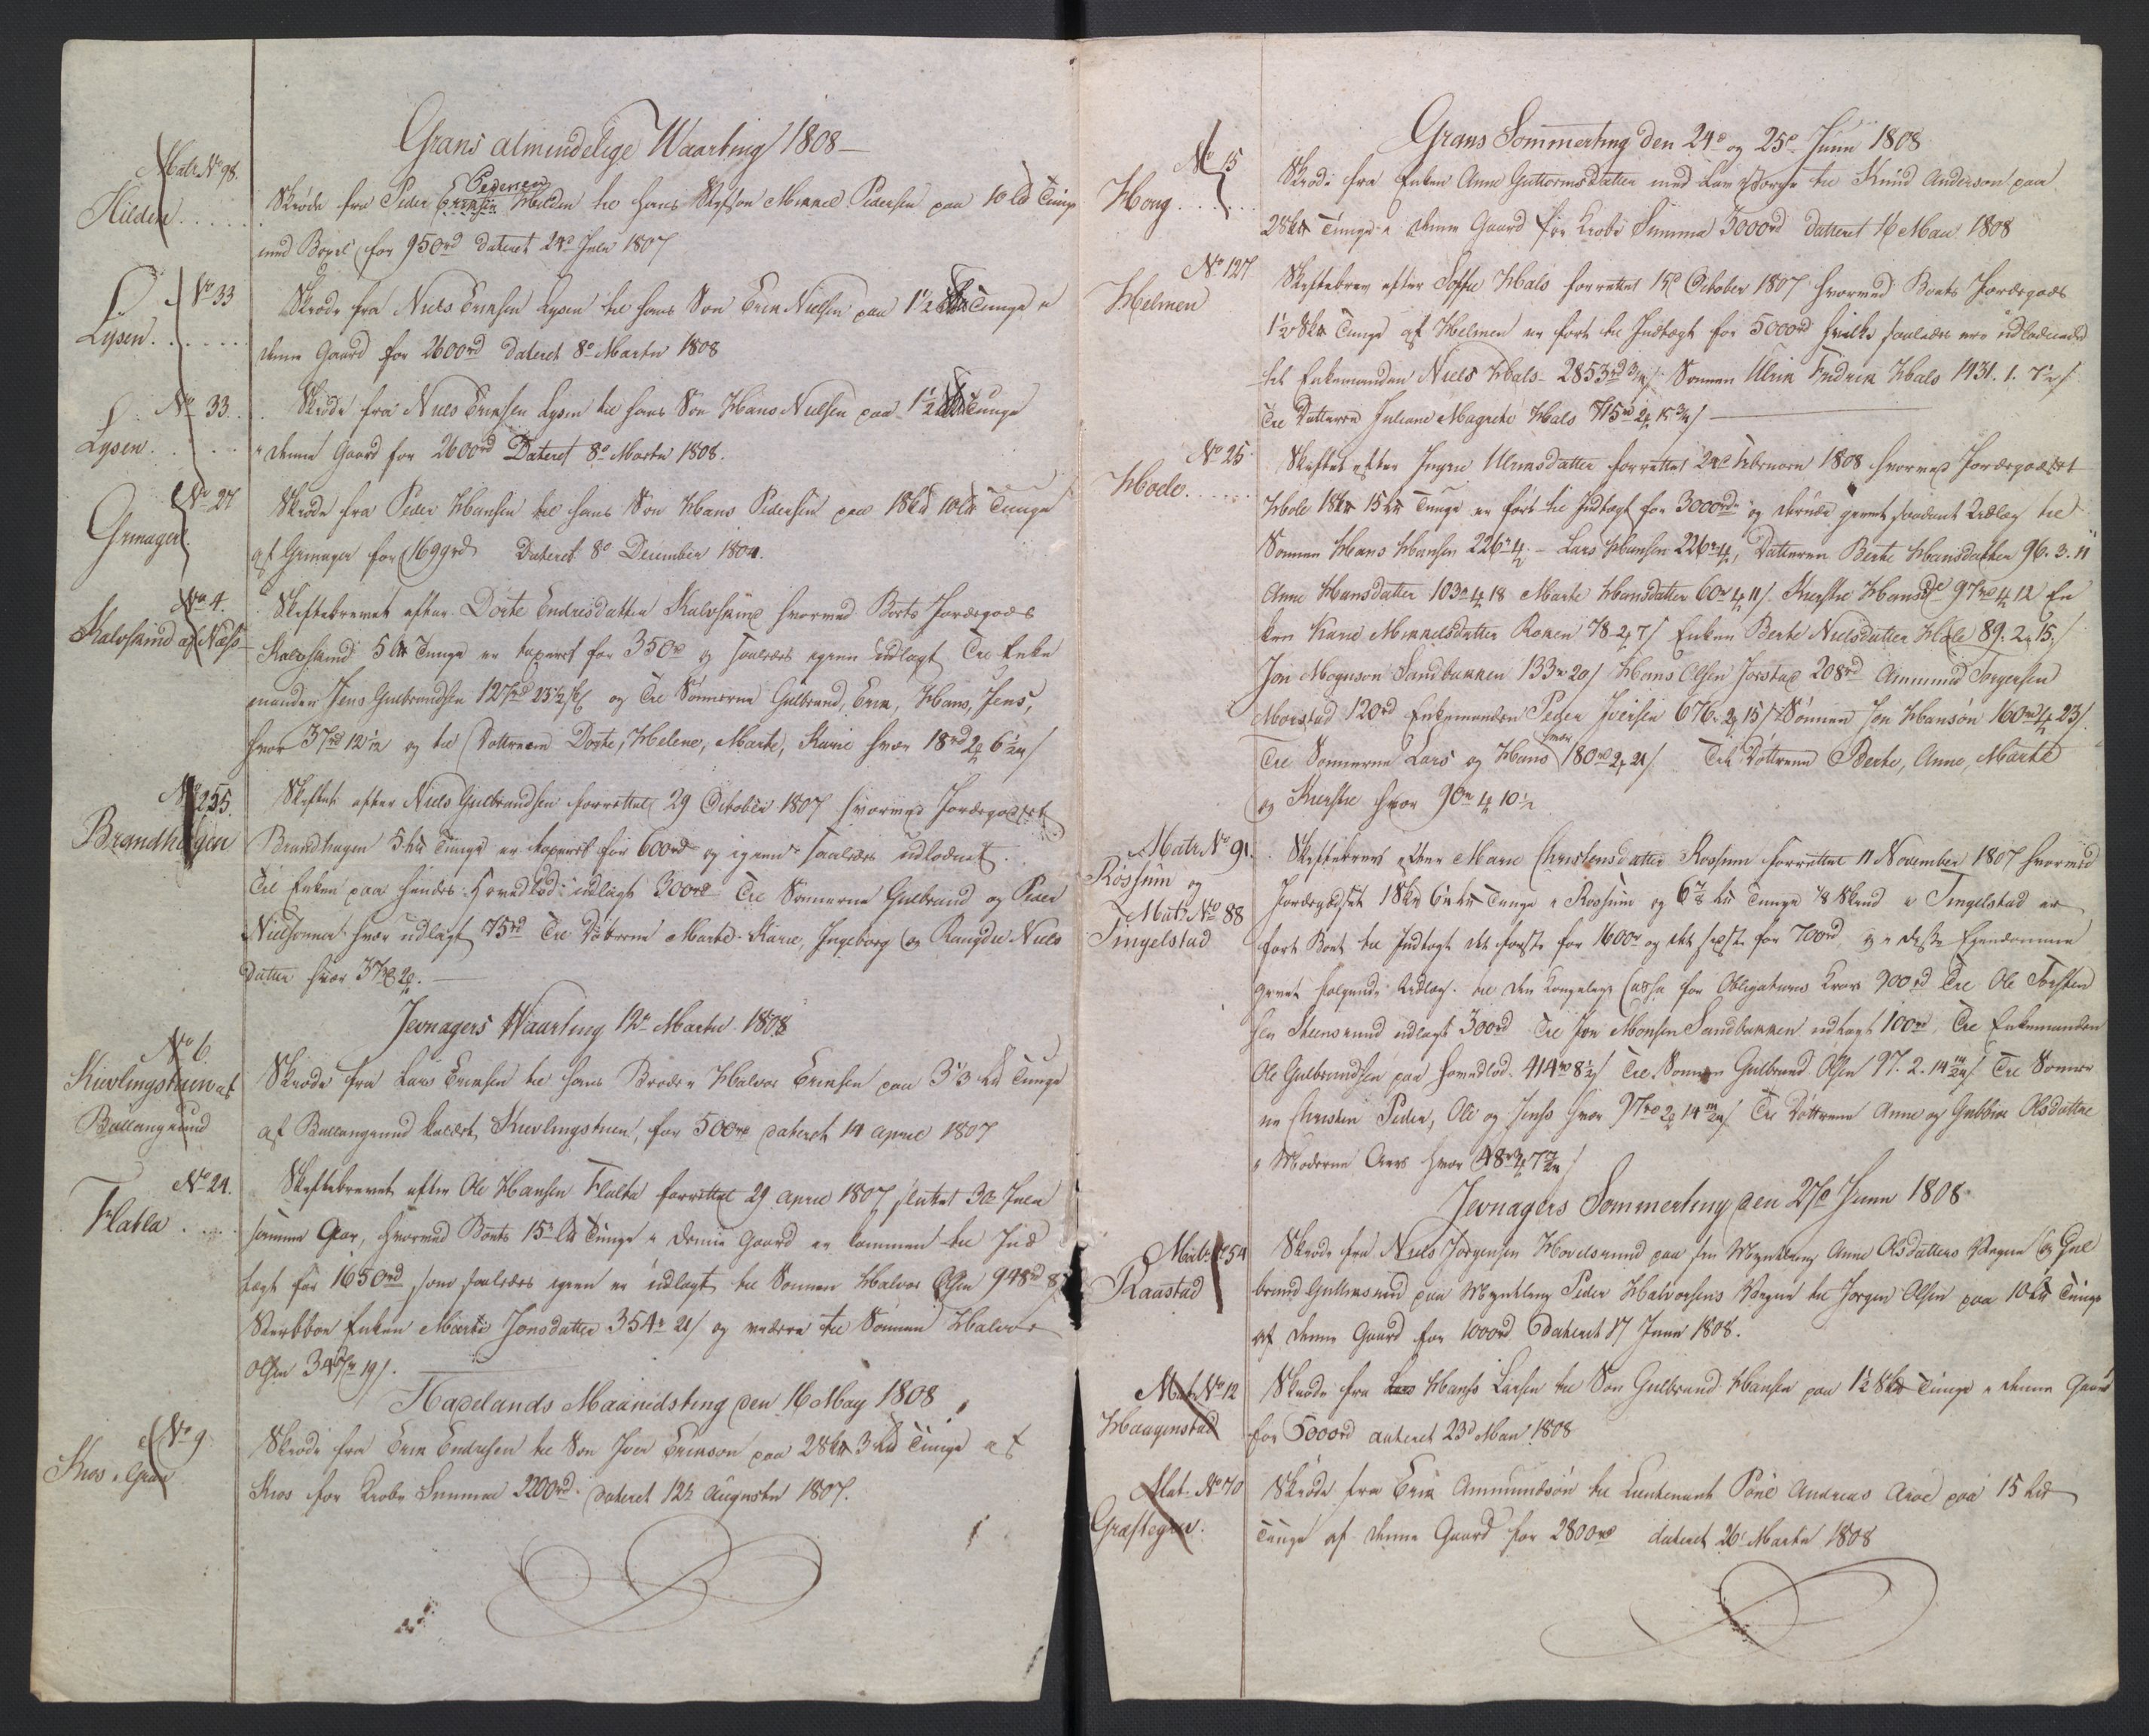 Grans almindelige Waarting 1808
Matr. No 98.
Hilden
Skiøde fra Peder Erichsen Pedersen Hilden til hans Stifsøn Michael Pedersen paa 10 Lb Tunge
med Bøxel for 950rd dateret 24d Julii 1807
No 33
Lysen
Skiøde fra Niels Erichsen Lysen til hans Søn Erich Nielsen paa 1 1/2 Tunge i
denne Gaard for 2600rd dateret 8d Martii 1808
No 33
Lysen
Skiøde fra Niels Erichsen Lysen til hans Søn Hans Nielsen paa 1 1/2 Tunge
i denne Gaard for 2600rd Dateret 8d Martii 1808.
No 27
Grinager
Skiøde fra Peder Hansen til hans Søn Hans Pedersen paa 1 Skd 10 Lb Tunge
af Grinager for 1699rd Dateret 8d December 1804.
No 4.
Kalvskind af Næss
Skiftebrevet efter Dorte Endresdatter Kalvskind hvorved Boets Jordegods
Kalvskind 5 Lb Tunge er taxeret for 350rd og saaledes igien udlagt Til Enke
manden Jens Gulbrandsen 127rd 23 1/2 s og Til Sønnerne Gulbrand, Erich, Hans, Jens,
hver 37rd 12 1/2 og til Døttrene Dorte, Helene, Marte, Karie hver 18rd 2 6 1/4 s
No 255.
Brandhagen
Skiftet efter Niels Gulbrandsen forrettet 29 October 1807 hvorved Jordegodset
Brandhagen 5 Lb Tunge er taxeret for 600rd og igien saaledes udloddet.
Til Enken paa hendes Hovedlod udlagt 300rd Til Sønnerne Gulbrand og Peder
Nielsønner hver udlagt 75rd Til Døtrene Marte Karie, Ingeborg og Rangdie Niels
datter hver 37rd 2.
Jevnagers Waarting 12d Martii 1808
No 6.
Kievlingstuen af
Ballangrund
Skiøde fra Lars Erichsen til hans Broder Halvor Erichsen paa 3 1/3 Lb Tunge
af Ballangrund kaldet Kievlingstuen, for 500rd dateret 14 april 1807
No 24.
Flatla
Skiftebrevet efter Ole Hansen Flatla forrettet 29 april 1807 sluttet 30 Julii
samme Aar, hvorved Boets 15 Lb Tunge i denne Gaard er kommen til Ind
tægt for 1650rd som saaledes igien er udlagt til Sønnen Halvor Olsen 948rd 8
Sterbboe Enken Marte Jonsdatter 354r 21 s og videre til Sønnen Halvor
Olsen 347r 19 s.
Hadelands Maanedsting den 16 May 1808
No 9
Kros i Gran
Skiøde fra Erich Endresen til Søn Iver Erichson paa 2 Skd 3 Lb Tunge af
Kros for Kiøbe Summa 2200rd dateret 12te Augustii 1807.
Grans Sommerting den 24d og 25d Junii 1808
No 15
Houg
Skiøde fra Enken Anne Guttormsdatter med Lav Værge til Knud Anderson paa
2 Skd Tunge i denne Gaard for Kiøbe Summa 3000rd datteret 16 Maii 1808
No 127
Helmen
Skiftebrev efter Sophie Hals forrettet 15d October 1807 hvorved Boets Jordegods
1 1/2 Skd Tunge af Helmen er ført til Indtægt for 5000rd hvilke saaledes ere udloddede
til Enkemanden Niels Hals 2853rd Sønnen Ulrik Fridrik Hals 1431. 1. 7 1/2 s
Til Datteren Juliane Magrete Hals 715rd 2 15 3/4 s
No 25
Hole
Skiftet efter Ingri Ulriksdatter forrettet 24d Februarii 1808 hvorved Jordegodset
Hole 1 Skd 15 Lb Tunge er ført til Indtægt for 3000rd og derudi giort saadant Udlæg til
Sønnen Hans Hansen 226r 4 Lars Hansen 226r 4, Datteren Berte Hansdatter 96. 3. 11
Anne Hansdatter 103r 4 18 Marte Hansdatter 60r 4 11 s. Kirstie Hansdr 97rd 4 12 En
ken Karie Michelsdatter Roken 78 2 7 s Enken Berte Nielsdatter Hole 89. 2. 15. s
Jon Mogenson Sandbakken 133r 20 s Hans Olsen Jorstad 208rd Ammund Torgersen
Morstad 120rd Enkemanden Peder Iversen 676. 2 15 s Sønnen Jon Hansøn 160rd 4 23 s.
Til Sønnerne Lars og Hans hver 180rd 2 21 s Til Døttrene Berte, Anne, Marte
og Kirstie hver 90r 4 10 1/2
Matr No 91.
Rossum og
Mat: No 88
Tingelstad
Skiftebrevet efter Marie Christensdatter Rossum forrettet 11 November 1807 hvorved
Jordegodset 1 Skd 6 Lb Tunge i Rossum og 6 Lb Tunge 1/8 Skind i Tingelstad er
ført Boet til Indtægt det første for 1600rd og det sidste for 700rd og i disse Ejendomme
giort følgende Udlæg. til den Kongelige Cassa for Obligations Krav 900rd Til Ole Torsten
sen Steensrud udlagt 300rd Til Jon Monsen Sandbakken udlagt 100rd Til Enkemanden
Ole Gulbrandsen paa Hovedlod 414rd 8 1/2 s Til Sønnen Gulbrand Olsen 97. 2. 14 s Til Sønner
ne Christen Peder, Ole og Jens hver 97rd 2 14 s Til Døttrene Anne og Gubbiør Olsdatter
i Moderne Arv hver 48r 4 7 s
Jevnagers Sommerting den 27d Junii 1808
Matr: No 54
Raastad
Skiøde fra Niels Jørgensen Hovelsrud paa sin Myndling Anne Olsdatters Vegne og Gul
brand Gulliksrud paa Myndling Peder Halvorsens Vegne til Jørgen Olsen paa 10 Lb Tunge
af denne Gaard for 1000rd dateret 17 Junii 1808.
Mat. No 12
Haugenstad
Skiøde fra Hans Larsen til Søn Gulbrand Hansen paa 1 1/2 Skd Tunge i denne Gaard
for 5000rd dateret 23d Maii 1808
Mat. No 70
Græstegen.
Skiøde fra Erik Ammundsøn til Lieutenant Andreas paa 15 Lb
Tunge af denne Gaard for 2800rd dateret 26 Martii 1808